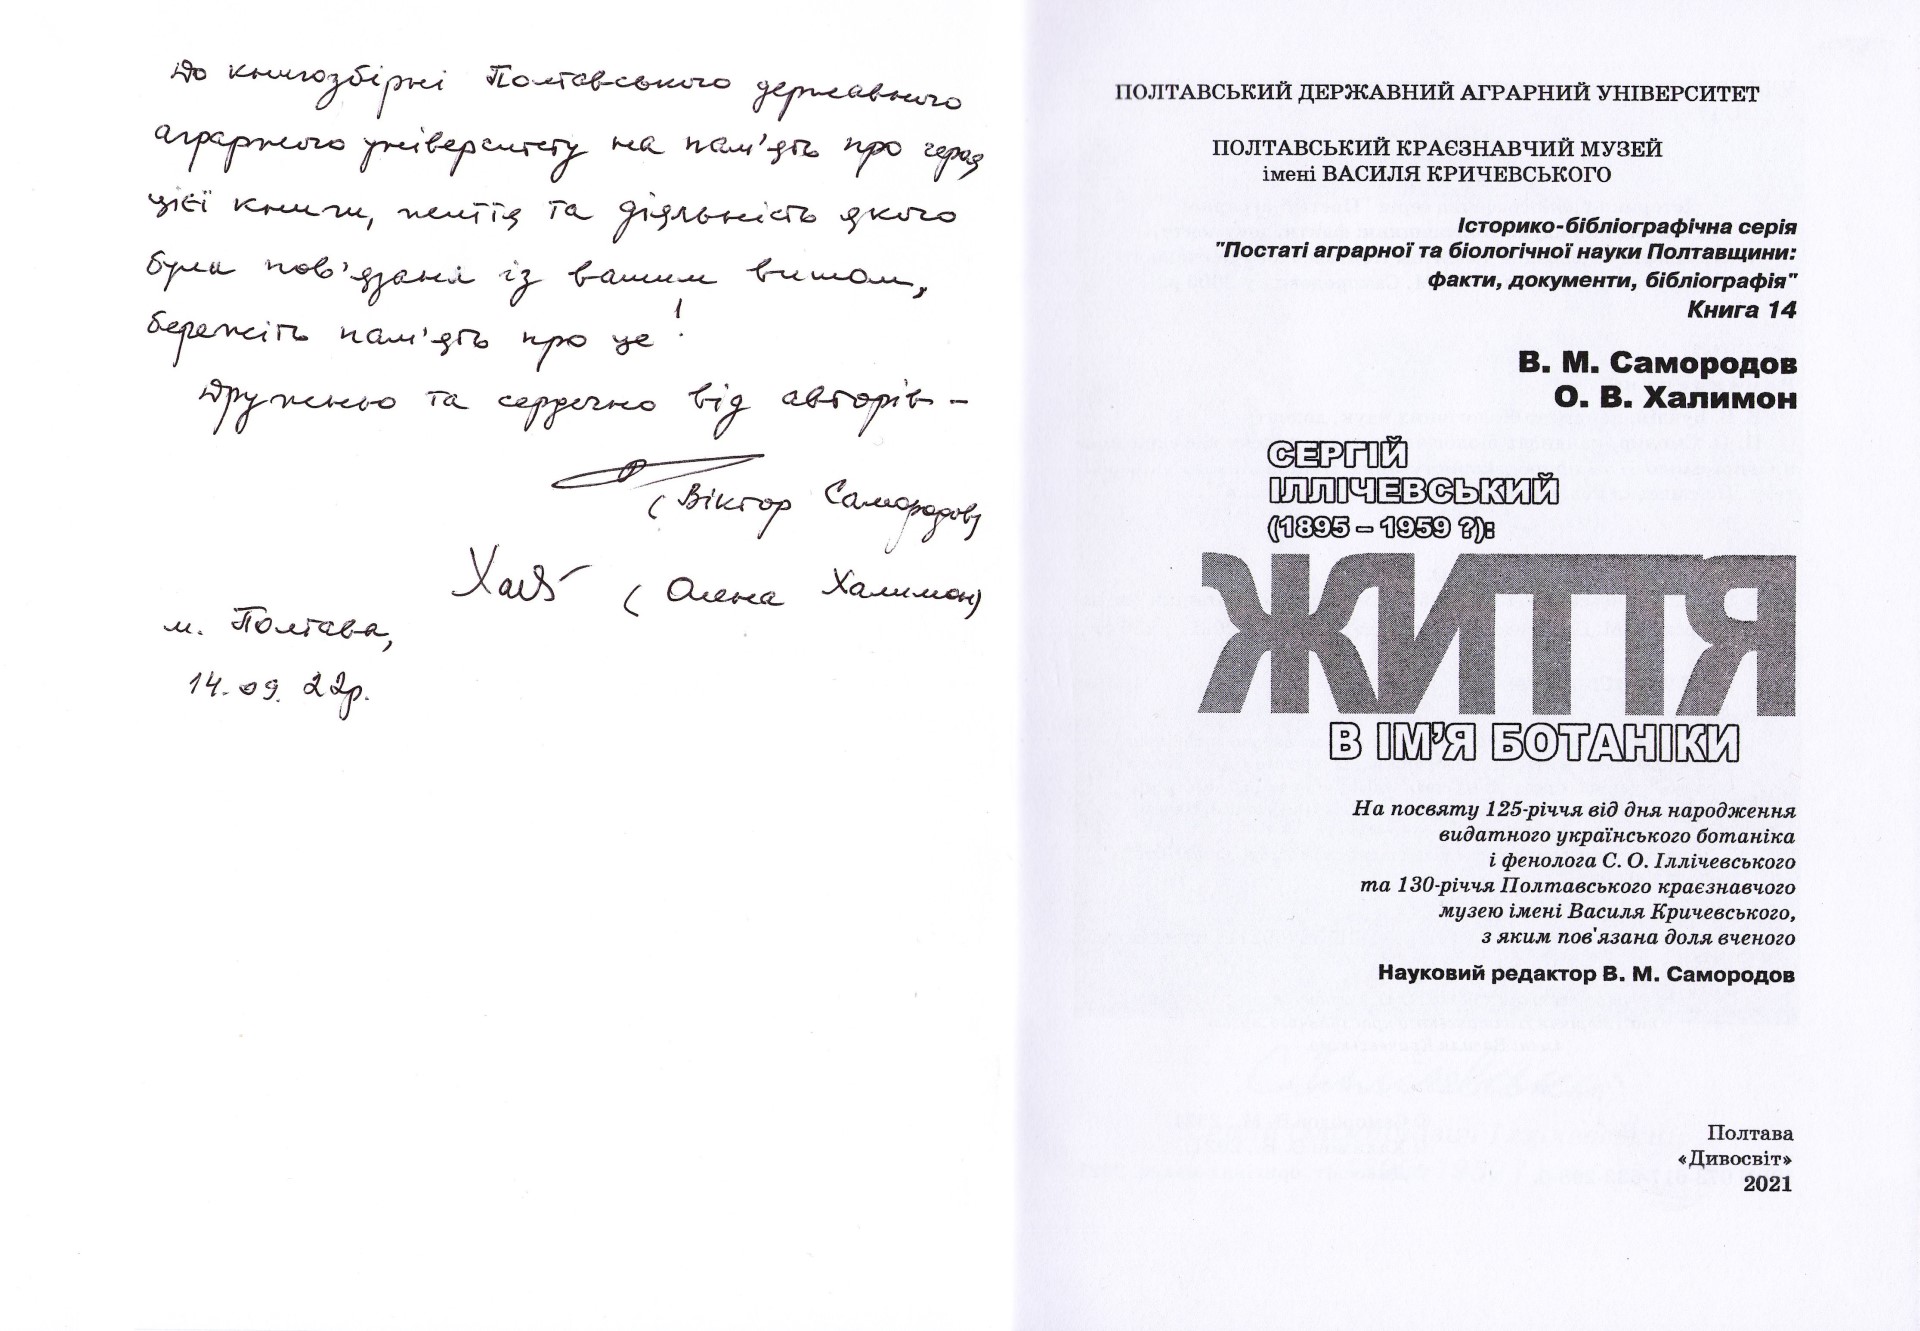 До книгозбірні Полтавського державного
аграрного університету на пам'ять про героя
цієї книги, життя та діяльність якого
були пов'язані із вашим вишом,
бережіть пам'ять про це!
Дружньо та сердечно від авторів –
(Віктор Самородов)
(Олена Халимон)
м. Полтава,
14.09.22р.
ПОЛТАВСЬКИЙ ДЕРЖАВНИЙ АГРАРНИЙ УНІВЕРСИТЕТ
ПОЛТАВСЬКИЙ КРАЄЗНАВЧИЙ МУЗЕЙ
імені ВАСИЛЯ КРИЧЕВСЬКОГО
Історико-бібліографічна серія
"Постаті аграрної та біологічної науки Полтавщини:
факти, документи, бібліографія"
Книга 14
В. М. Самородов
О. В. Халимон
СЕРГІЙ
ІЛЛІЧЕВСЬКИЙ
(1895 – 1959 ?):
ЖИТТЯ
В ІМ'Я БОТАНІКИ
На посвяту 125-річчя від дня народження
видатного українського ботаніка
і фенолога С. О. Іллічевського
та 130-річчя Полтавського краєзнавчого
музею імені Василя Кричевського,
з яким пов'язана доля вченого
Науковий редактор В. М. Самородов
Полтава
«Дивосвіт»
2021